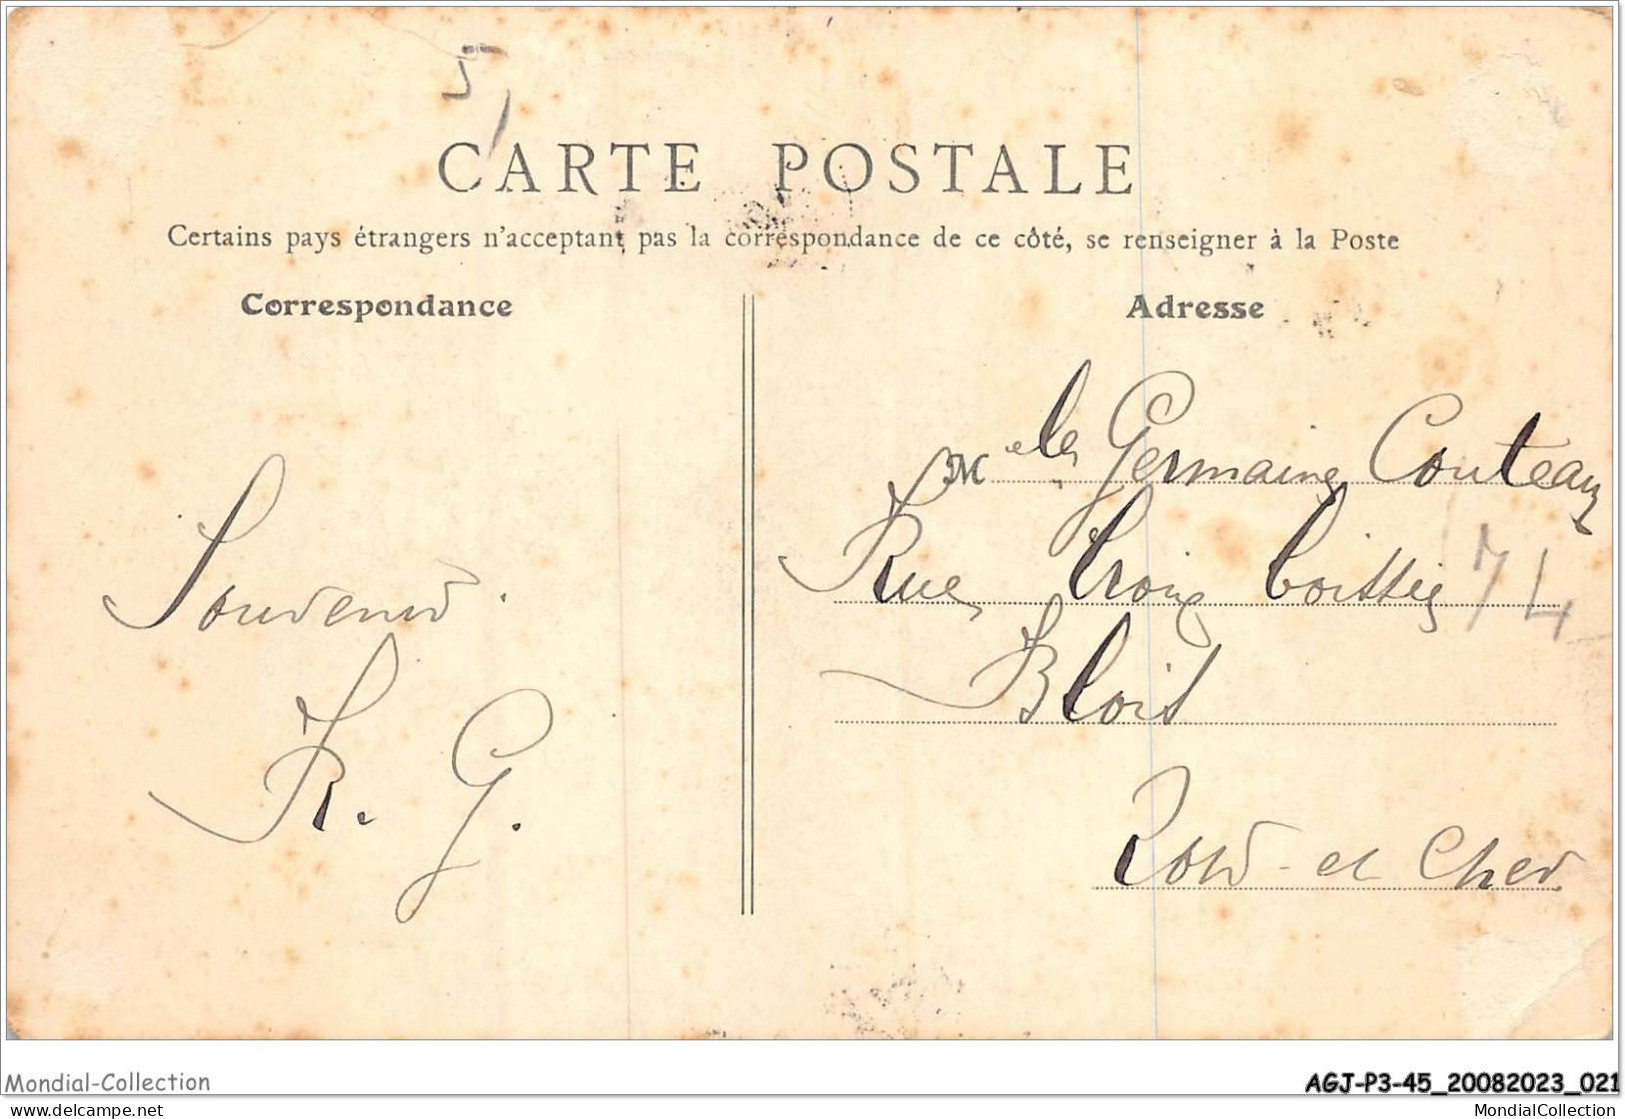 5
CARTE POSTALE
Certains pays étrangers n'acceptant pas la correspondance de ce côté, se renseigner à la Poste
Correspondance
Souvenir.
R. G.
Adresse
Melle Germaine Couteau
Rue
74
Blois
Loir-et Cher
Mondial-Collection
AGJ-P3-45_20082023_021
www.delcampe.net
MondialCollection